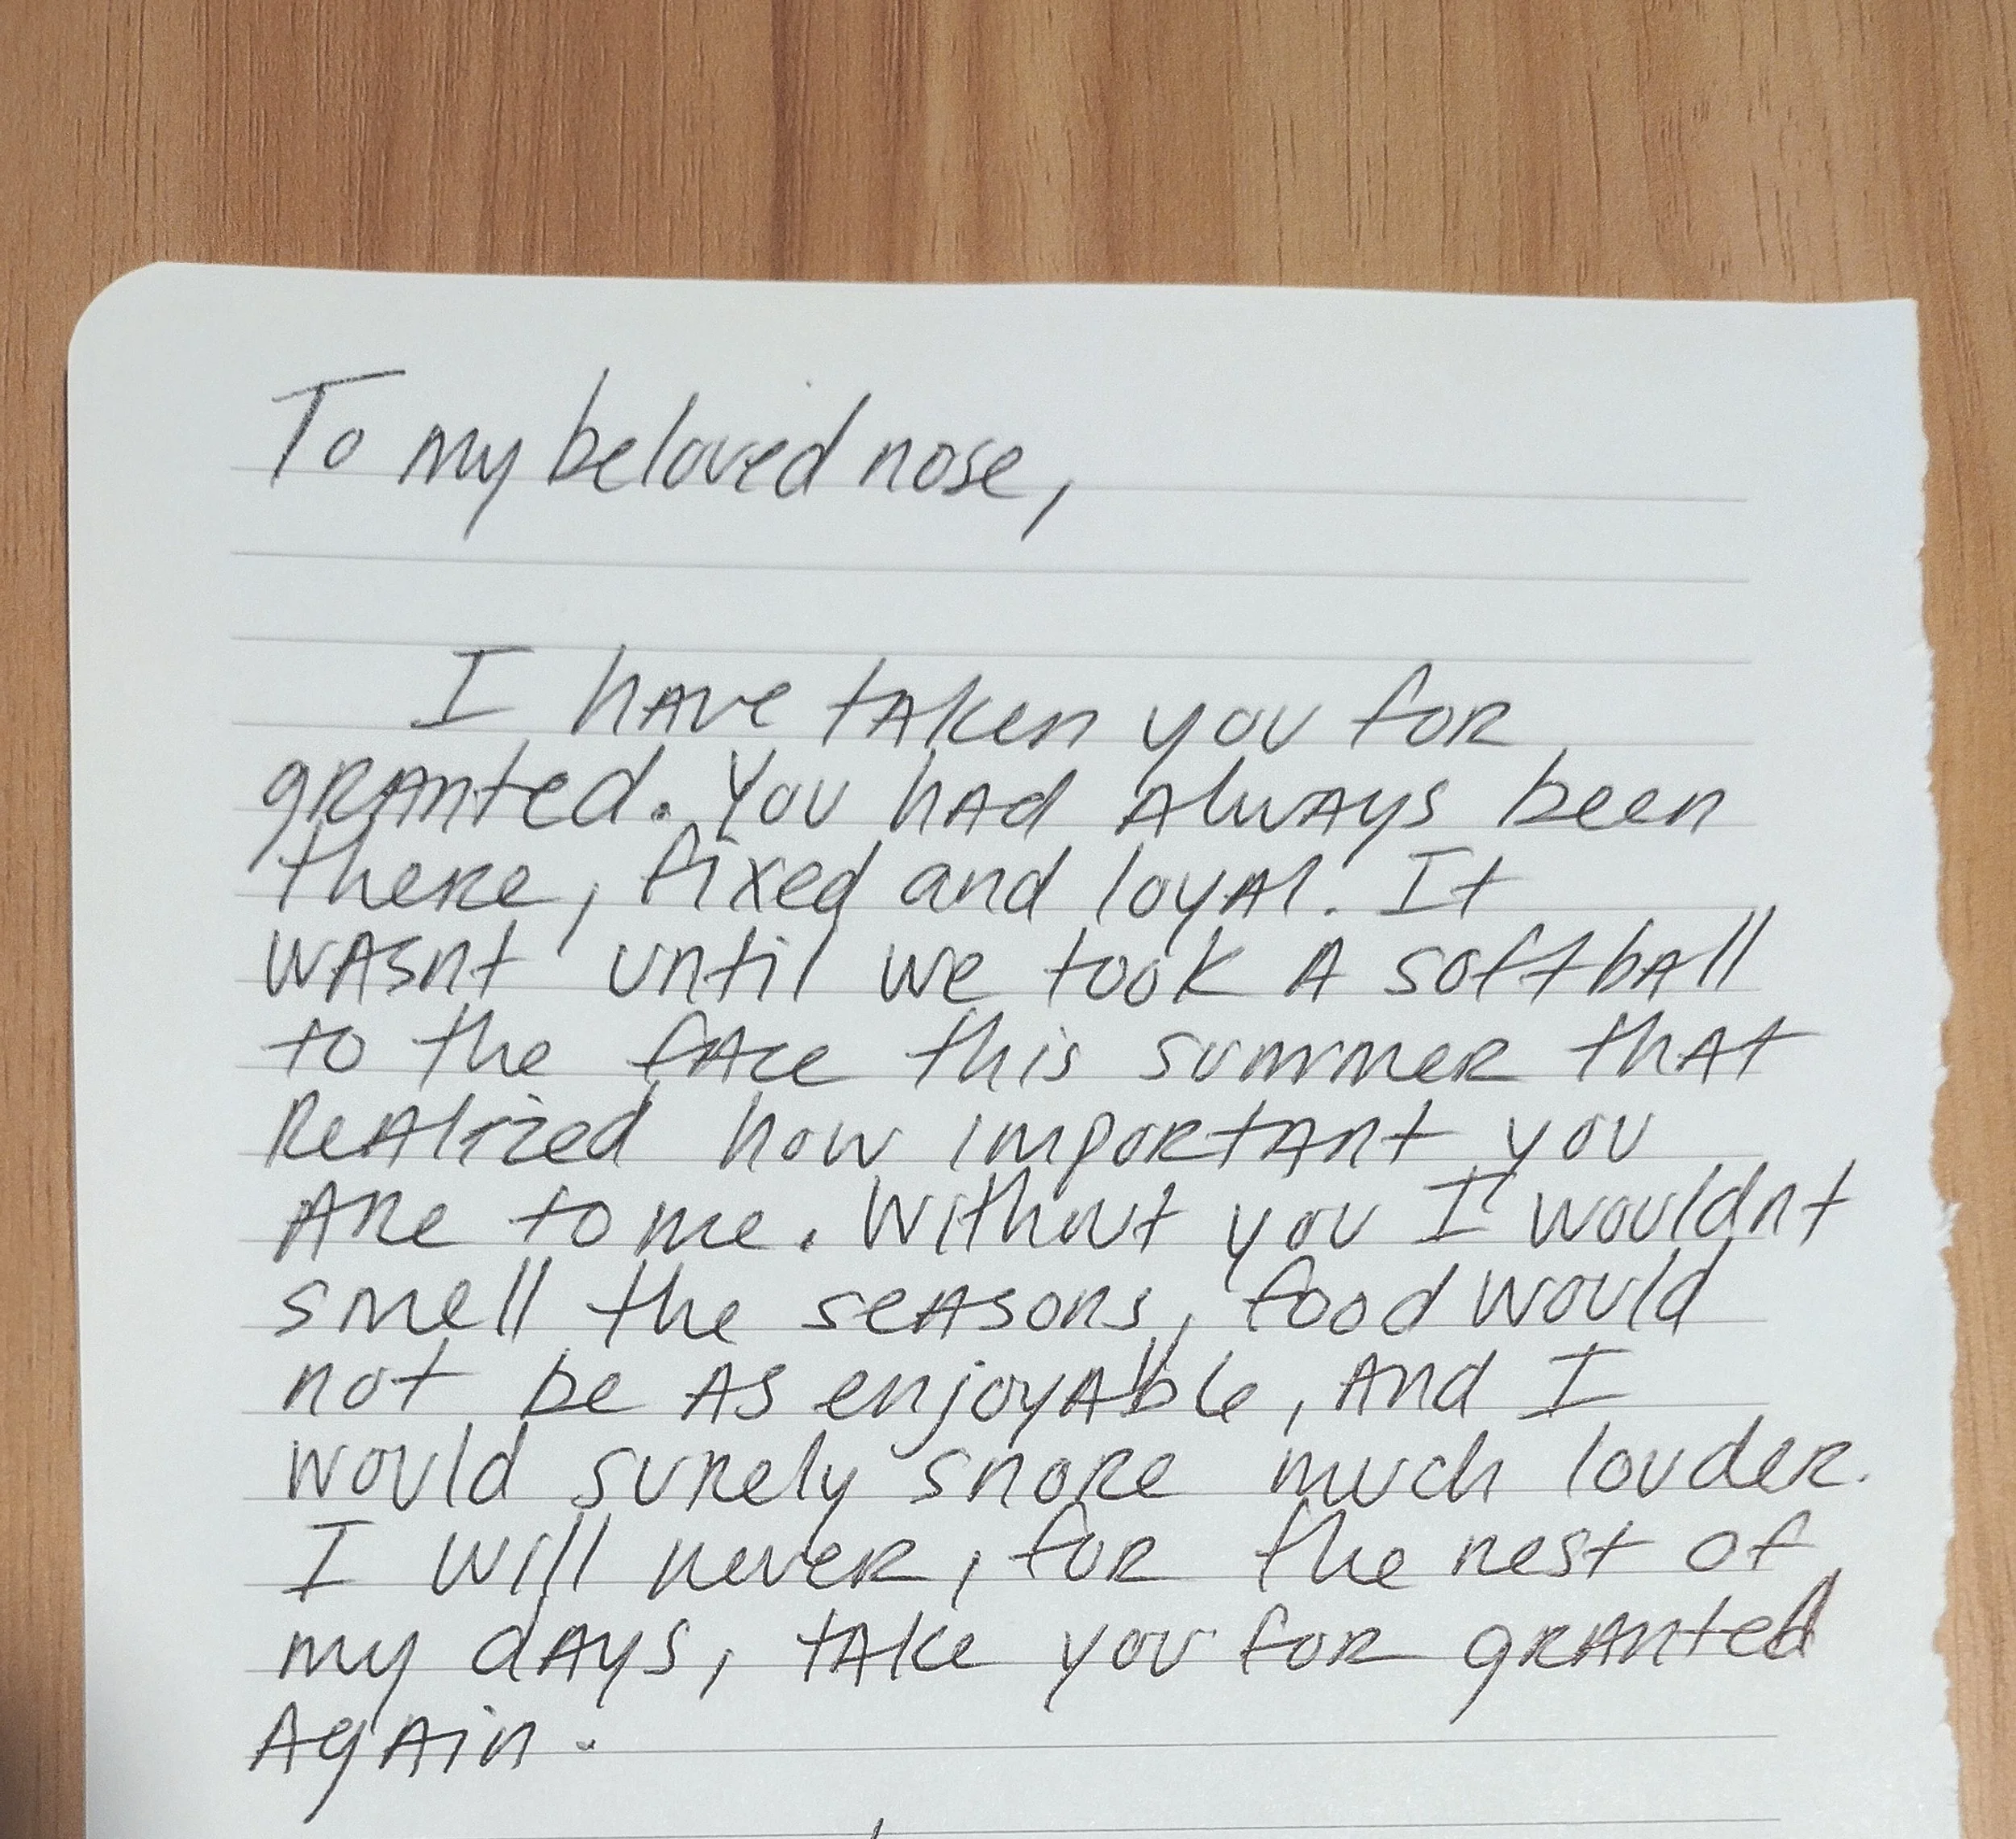 To my beloved nose,
I have taken you for
granted. You had always been
there, fixed and loyal. It
wasnt until we took a softball
to the face this summer that
Realized how important you
are to me. Without you I wouldnt
smell the seasons, food would
not be as enjoyable, and I
would surely snore much louder.
I will never, for the rest of
my days, take you for granted
again.